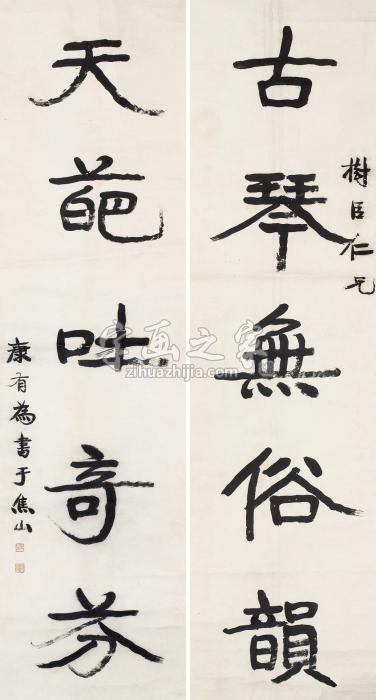 古琴無俗韻
樹臣仁兄
天葩吐奇芬
康有為書于焦山
字画之家
zihuazhijia.com